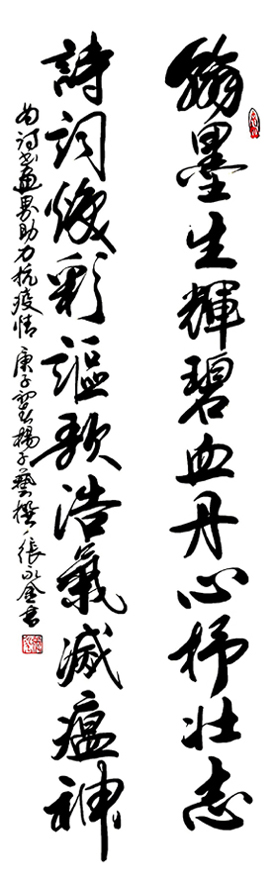 翰墨生輝碧血丹心抒壯志
詩詞煥彩謳歌浩氣滅瘟神
為詩書畫界助力抗疫情 庚子 楊子藝撰 張永金書